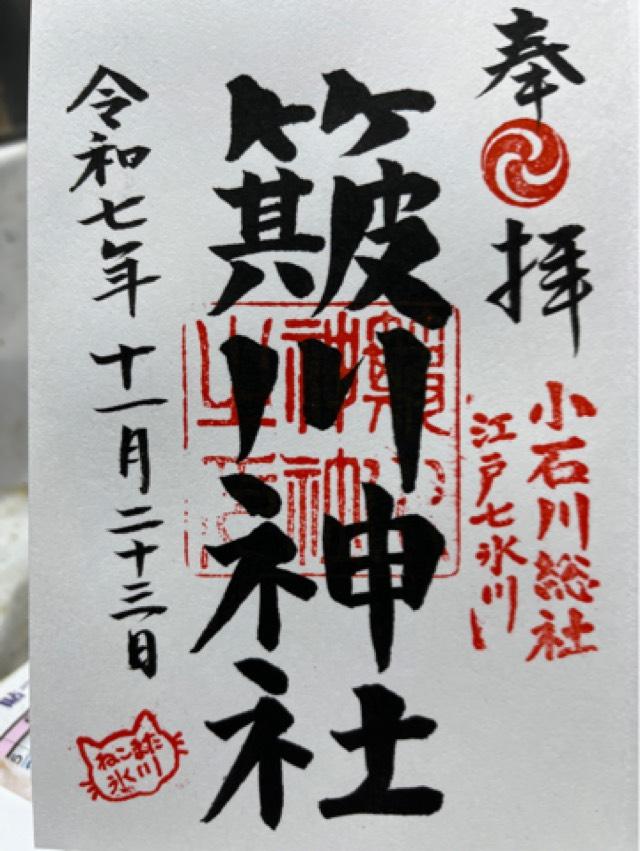 奉拝
小石川総社
江戸七氷川
簸川神社
令和七年十一月二十三日
ねこまた
氷川